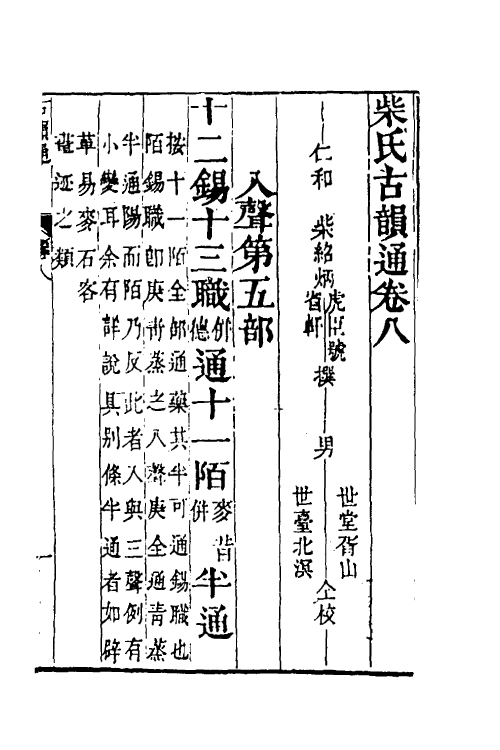 柴氏古韻通卷八
仁和 柴紹炳虎臣號省軒 撰 男 世堂胥山 世臺北溟 仝校
入聲第五部
十二錫十三職併德通十一陌麥昔併半通
按十一陌全部通藥其半可通錫職也
陌錫職卽庚靑蒸之入聲庚全通青蒸
半通陽而陌乃反此者入與三聲例有
小變耳余有詳說具别條半通者如辟
革易麥石客
迹之類